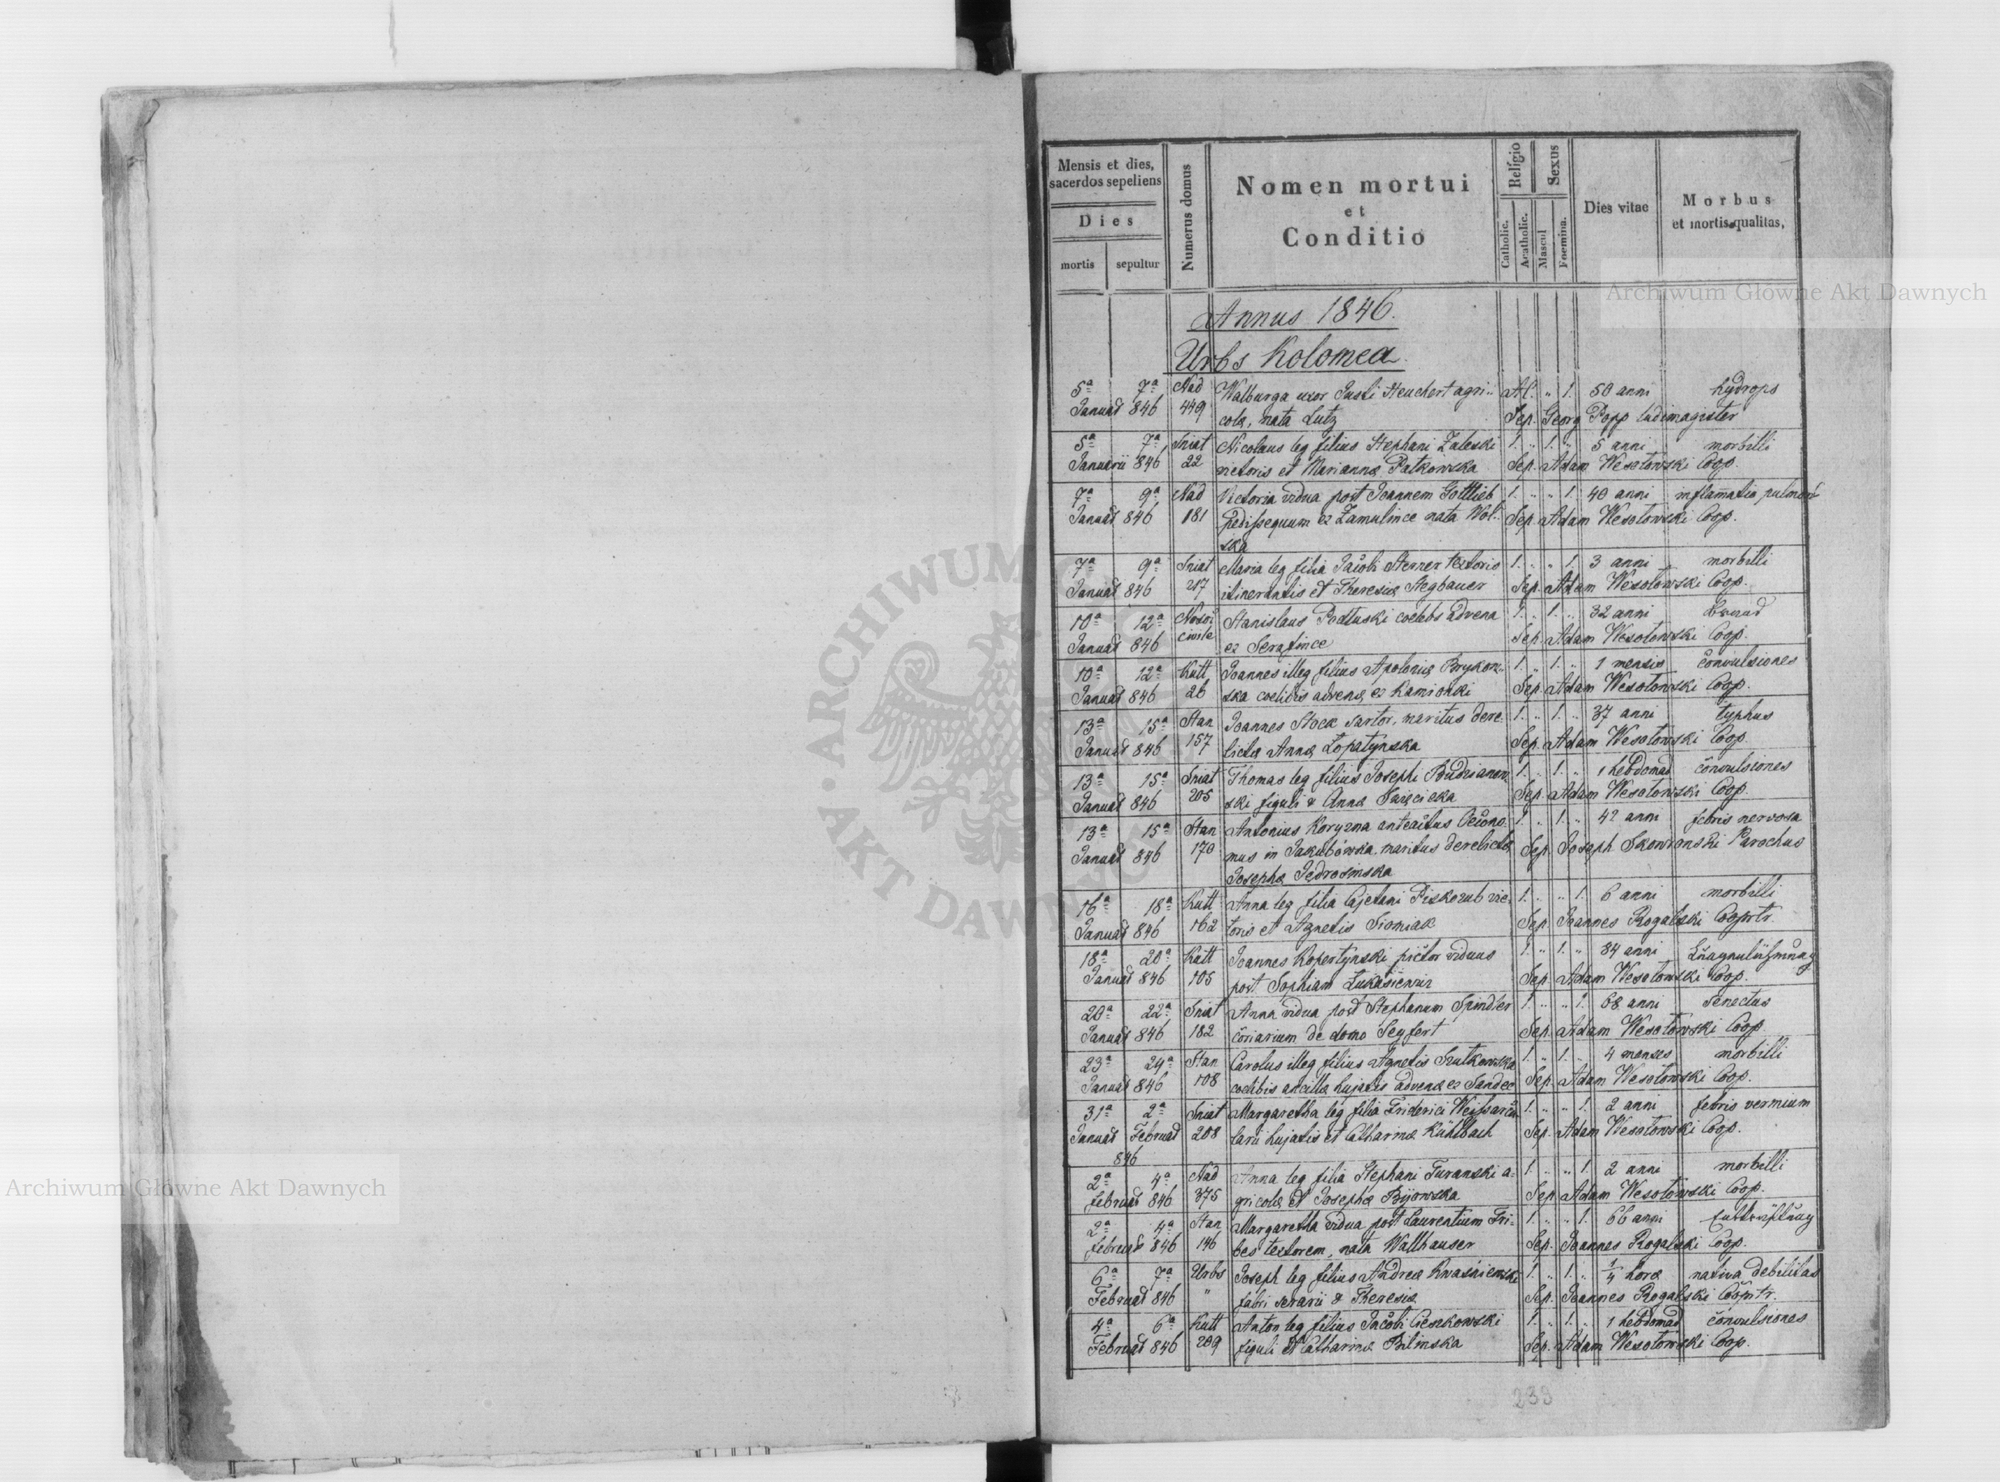 Mensis et dies,
sacerdos sepeliens
Dies
mortis sepultur
Numerus domus
Nomen mortui
et
Conditio
Religio
Catholic.
Acatholic.
Sexus
Mascul
Foemina.
Dies vitae
Morbus
et mortis qualitas,
Annus 1846.
Urbs Kolomea.
5a 7a Nad Walburga uxor Justi Heuchert agri- Al. " 1. 50 anni hydrops
Januar 846 449 colæ, nata Lutz Sep. Georg Popp ludimagister
5a 7a Sniat Nicolaus leg filius Stephani Zaleski 1. 1. " 5 anni morbilli
Januarii 846 22 victoris et Mariannæ Patkowska Sep. Adam Wesołowski Coop.
7a 9a Nad Victoria vidua post Joannem Gottlieb 1. " " 1. 40 anni inflamatio pulmon
Januar 846 181 pedissequum ex Zamulince nata Wol- Sep. Adam Wesołowski Coop.
ska
7a 9a Sniat Maria leg filia Jacobi Sterzer textoris 1. " " 1. 3 anni morbilli
Januar 846 217 itinerantis et Theresiæ Stegbauer Sep. Adam Wesołowski Coop.
10a 12a Stanislaus Podluski coelebs advena 1. " 1. " 32 anni
Januar 846 civile ex Serafince Sep. Adam Wesołowski Coop.
10a 12a Kutt Joannes illeg filius Apoloniæ Brykow- 1. " 1. " 1 mensis convulsiones
Januar 846 26 ska coelibis advenæ ex Kamionki Sep. Adam Wesołowski Coop.
13a 15a Stan Joannes Stock sartor, maritus dere- 1. " 1. " 37 anni typhus
Januar 846 157 lictæ Annæ Łopatynska Sep. Adam Wesołowski Coop.
13a 15a Sniat Thomas leg filius Josephi Budzianow- 1. " 1. " 1 hebdomad convulsiones
Januar 846 205 ski figuli & Annæ Swięcicka Sep. Adam Wesołowski Coop.
13a 15a Stan Antonius Koryzna anteactus Oecono- 1. " 1. " 42 anni febris nervosa
Januar 846 170 mus in Jakubówka maritus derelictæ Sep. Joseph Skowronski Parochus
Josephæ Jędrosinska
16a 18a Kutt Anna leg filia Cajetani Piskozub vic- 1. " " 1. 6 anni morbilli
Januar 846 162 toris et Agnetis Sromiak Sep. Joannes Rogalski Cooprtr.
18a 20a Kutt Joannes Kopertynski pictor viduus 1. " 1. " 34 anni
Januar 846 105 post Sophiam Łukasiewicz Sep. Adam Wesołowski Coop.
20a 22a Sniat Anna vidua post Stephanum Spindler 1. " " 1. 68 anni senectus
Januar 846 182 coriarium de domo Seyfert Sep. Adam Wesołowski Coop.
23a 24a Stan Carolus illeg filius Agnetis Szutkowska 1. " 1. " 4 menses morbilli
Januar 846 108 coelibis ancillæ hujatis advenæ ex Sandec Sep. Adam Wesołowski Coop.
31a 2a Sniat Margaretha leg filia Friderici Weiss 1. " " 1. 2 anni febris vermium
Januar Februar 208 larii hujatis et Catharinæ Kühlbach Sep. Adam Wesołowski Coop.
846
2a 4a Nad Anna leg filia Stephani Turanski a- 1. " " 1. 2 anni morbilli
Februar 846 375 gricolæ et Josephæ Bijowska Sep. Adam Wesołowski Coop.
2a 4a Stan Margaretha vidua post Laurentium Tri- 1. " " 1. 66 anni
Februar 846 146 bes textorem, nata Wallhauser Sep. Joannes Rogalski Coop.
6a 7a Urbs Joseph leg filius Andreæ Kwasniewski 1. " 1. " 1/4 horæ nativa debilitas
Februar 846 " fabri serarii & Theresiæ Sep. Joannes Rogalski Cooprtr.
4a 6a Kutt Anton leg filius Jacobi Cieszkowski 1. " 1. " 1 hebdomad convulsiones
Februar 846 209 figuli et Catharinæ Bilinska Sep. Adam Wesołowski Coop.
239
Archiwum Główne Akt Dawnych
Archiwum Główne Akt Dawnych
ARCHIWUM
AKT DAWNYCH